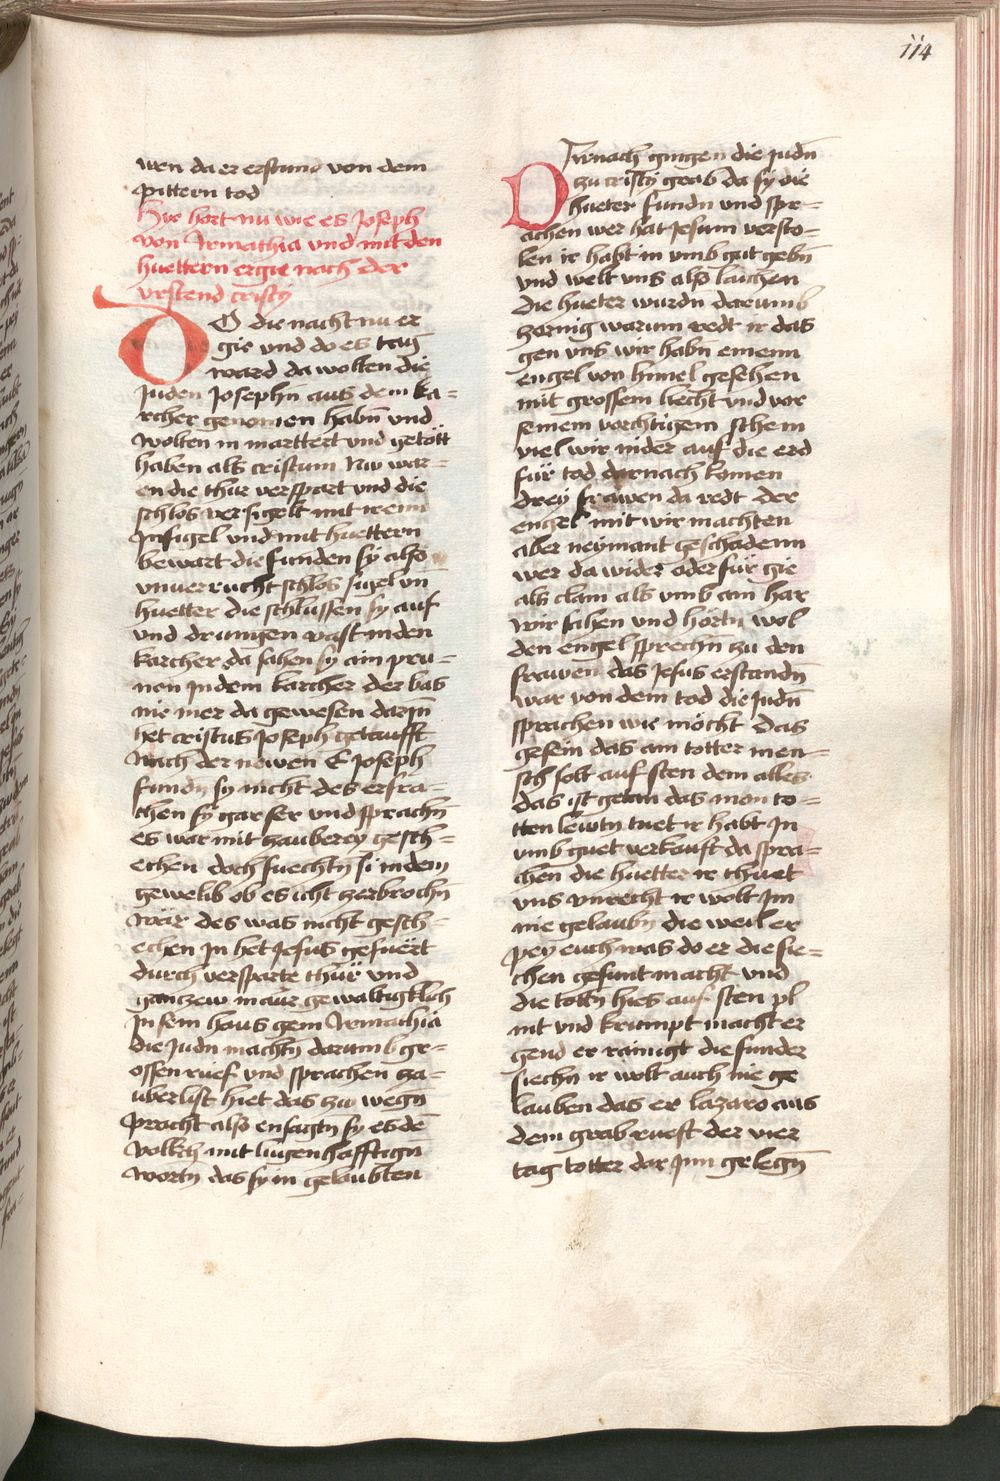 114
wen da er erstund von dem
pittern tod
Hye hort nu wie es Joseph
von Armathia vnd mit den
huettern ergie nach der
vrstend cristy
DO die nacht nu er
gie vnd do es tag
ward da wolten die
Juden Josephn aus dem ka-
rcher genomen habn vnd
wolten in marttert vnd getött
haben als cristum Nw war-
en die thur versspart vnd die
schlos versigelt mit irem
Insigel vnd mit huettern
bewart die funden sy also
vnuerrucht schlos sigel vn̄
huetter die schlussen sy auf
vnd drungen vast in den
karcher da sahen sy ain pru-
nen in dem karcher der bas
nie mer da gewesen darin̄
het cristus Joseph getaufft
Nach der newen E Joseph
fundn̄ sy nicht des erschra-
cken sy gar ser vnd sprachn̄
es war mit zauberey gesch-
echen doch fuechtn̄ si in dem
gewelib ob es icht zerbrochn̄
wär des was nicht gesch-
echen Jn het Jesus gefuert
durch versparte thür vnd
ganczew maur gewaltigklich
In sein haus gein Armathia
die Judn machtn̄ darumb gr-
ossen ruef vnd sprachen za-
uberlist hiet das zw wegn̄
pracht also ensagtn̄ sy es dē
volkch mit lugenhafftign̄
wortn̄ das sy in gelaubten
Darnach gingen die judn̄
zu cristy grab da sy die
hueter fundn vnd spr-
achen wer hat Jesum versto-
len ir habt in vmb gut gebn̄
vnd welt vns also laichen
die hueter wurdn darumb
zornig warum redt ir das
gen vns wir habn einenn
engel von himel gesehen
mit grossem liecht vnd vor
seinem vorchtigem schein
viel wir nider auf die erd
für tod darnach komen
drey frawen da redt der
engel mit wir machten
aber neymant geschadenn
wer da wider oder für gie
als clain als vmb ain har
wir sahen vnd hörtn wol
den engel sprechn̄ zu den
frawen das Jesus erstandn̄
war von dem tod die judn̄
sprachen wie möcht das
gesein das ain totter men-
sch solt auf sten dem alles
das ist getan das mon to-
tten lewtn tuet ir habt In
vmb guet verkauft da spra-
chen die huetter ir thuet
vns vnrecht ir wolt Im
nie gelaubn̄ die weil er
pey euch was do er die sie-
chen gesunt macht vnd
die tottn̄ hies auf sten pl
int vnd krumpt macht er
gend er rainigt die sunder
siechn ir wolt auch nie ge
lauben das er lazaro aus
dem grab rueft der vier
tag totter dar Jnn gelegn̄